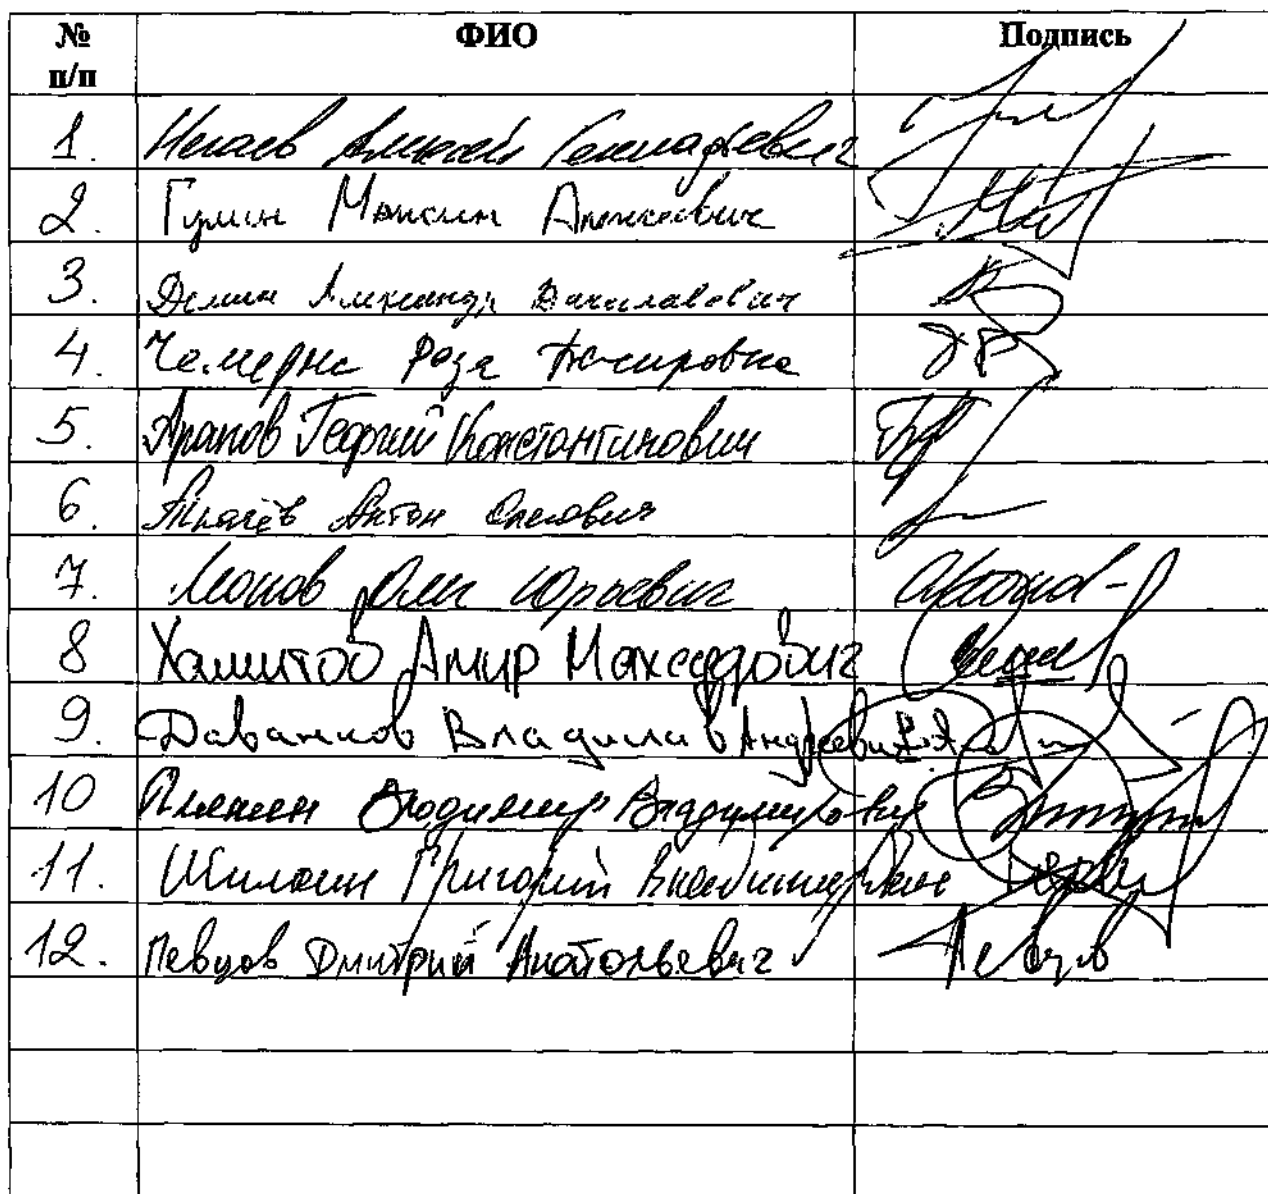 № п/п ФИО Подпись
1. Нечаев Алексей Геннадьевич
2. Гулин Максим Алексеевич
3. Демин Александр Вячеславович
4. Чемерис Роза Басировна
5. Арапов Георгий Константинович
6. Ткачёв Антон Олегович
7. Леонов Олег Юрьевич
8 Хамитов Амир Махсудович
9. Даванков Владислав Андреевич
10 Плякин Владимир Владимирович
11. Шилкин Григорий Владимирович
12. Певцов Дмитрий Анатольевич Певцов